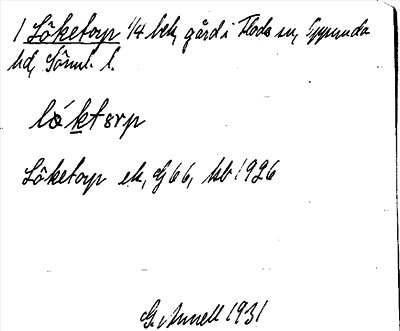 1 Löketorp 1/4 bek, gård i Floda sn, Oppunda
hd, Söml. l.
lóktorp
Löketorp ek, Gj 66, kb 1926
G. Annell 1931